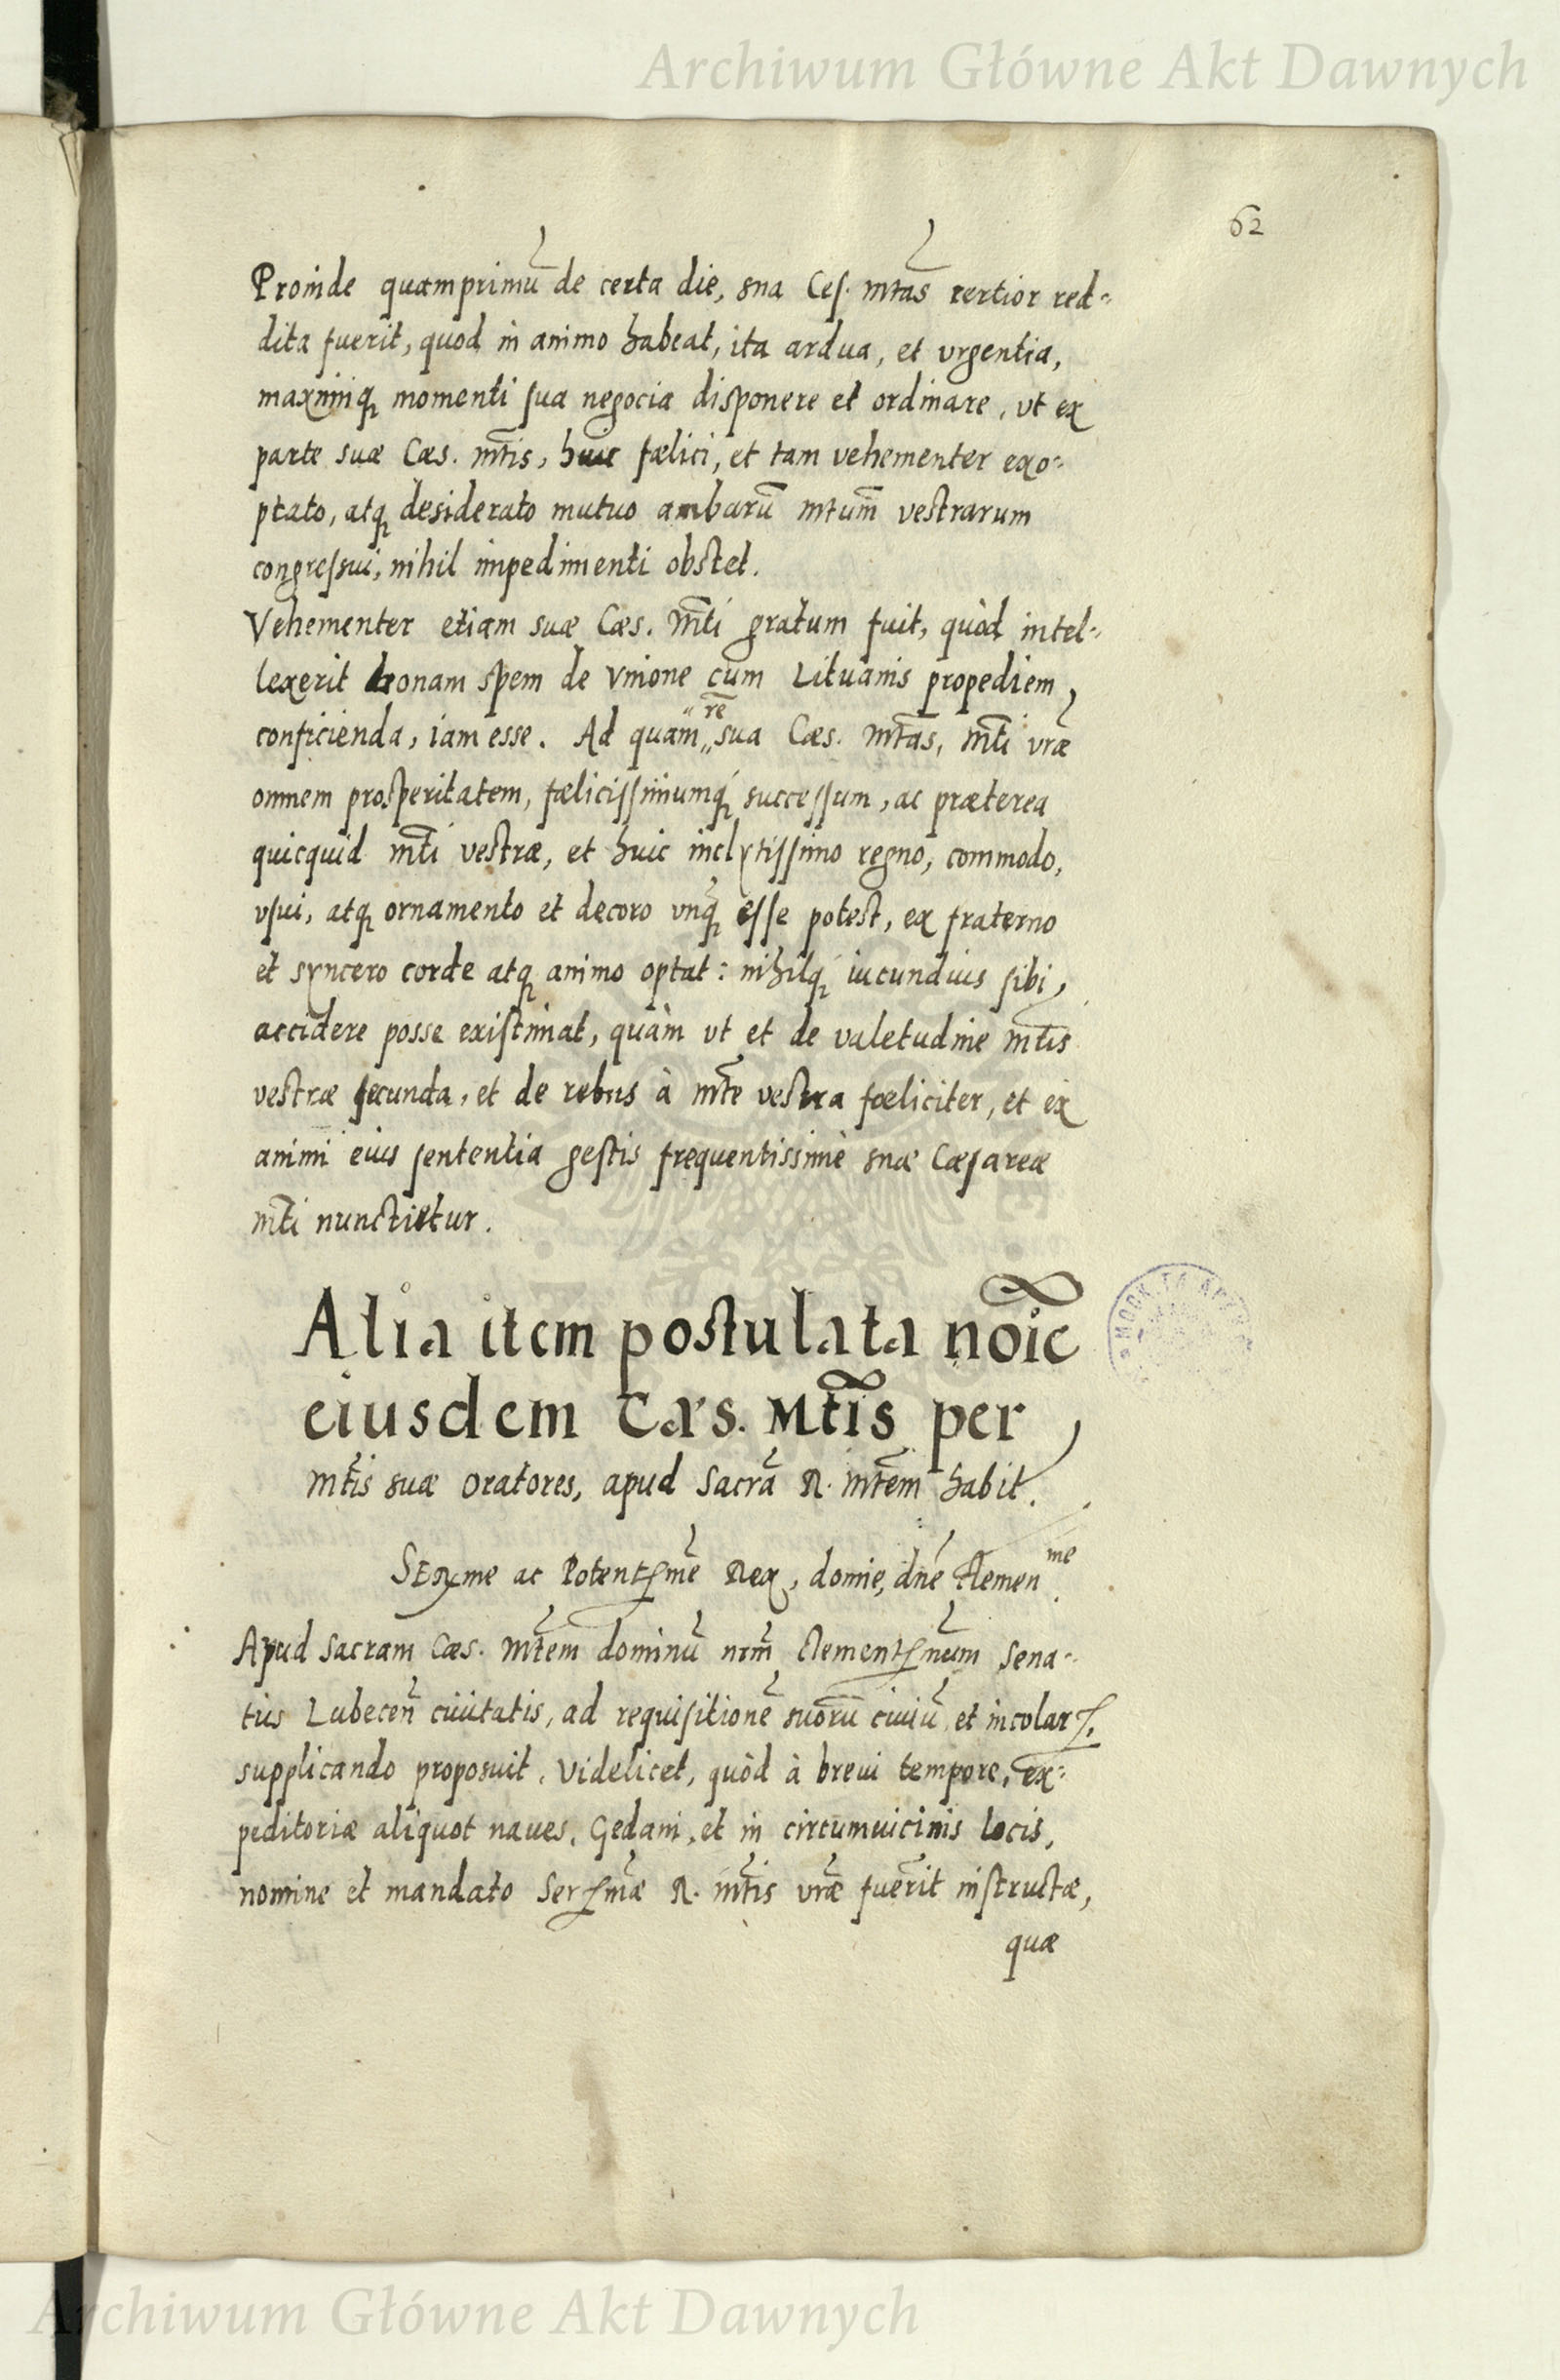 Archiwum Główne Akt Dawnych
62
Proinde quamprimū de certa die, sua Ces. mtas certior red=
dita fuerit, quod in animo habeat, ita ardua, et vrgentia,
maximiq; momenti sua negocia disponere et ordinare, vt ex
parte suæ Cæs. mtis, huic fælici, et tam vehementer exo=
ptato, atq; desiderato mutuo ambarū mtum vestrarum
congressui, nihil impedimenti obstet.
Vehementer etiam suæ Cæs. Mti gratum fuit, quòd intel=
lexerit bonam spem de vnione cum Lituanis propediem
conficienda, iam esse. Ad quam rē sua Cæs. Mtas, Mti vræ
omnem prosperitatem, fælicissimumq; successum, ac præterea
quicquid mti vestræ, et huic inclytissimo regno, commodo,
vsui, atq; ornamento et decoro vnq; esse potest, ex fraterno
et syncero corde atq; animo optat: nihilq; iucundius sibi,
accidere posse existimat, quàm vt et de valetudine mtis
vestræ secunda, et de rebus à mte vestra fœliciter, et ex
animi eius sententia gestis frequentissimè suæ Cæsareæ
mti nunctietur.
Alia item postulata noīe
eiusdem Cæs. Mtis per
Mtis suæ Oratores, apud Sacrā R. Mtem habit.
Serme ac Potentsme Rex, domie, dne Clemen me.
Apud Sacram Cæs. Mtem dominū nrm Clementsmum Sena=
tus Lubecen ciuitatis, ad requisitionē suorū ciuiū, et incolar,
supplicando proposuit, Videlicet, quòd à breui tempore, ex=
peditoriæ aliquot naues, Gedani, et in circumuicinis locis,
nomine et mandato Sersmæ R. mtis vræ fuerit instructæ,
quæ
Archiwum Główne Akt Dawnych